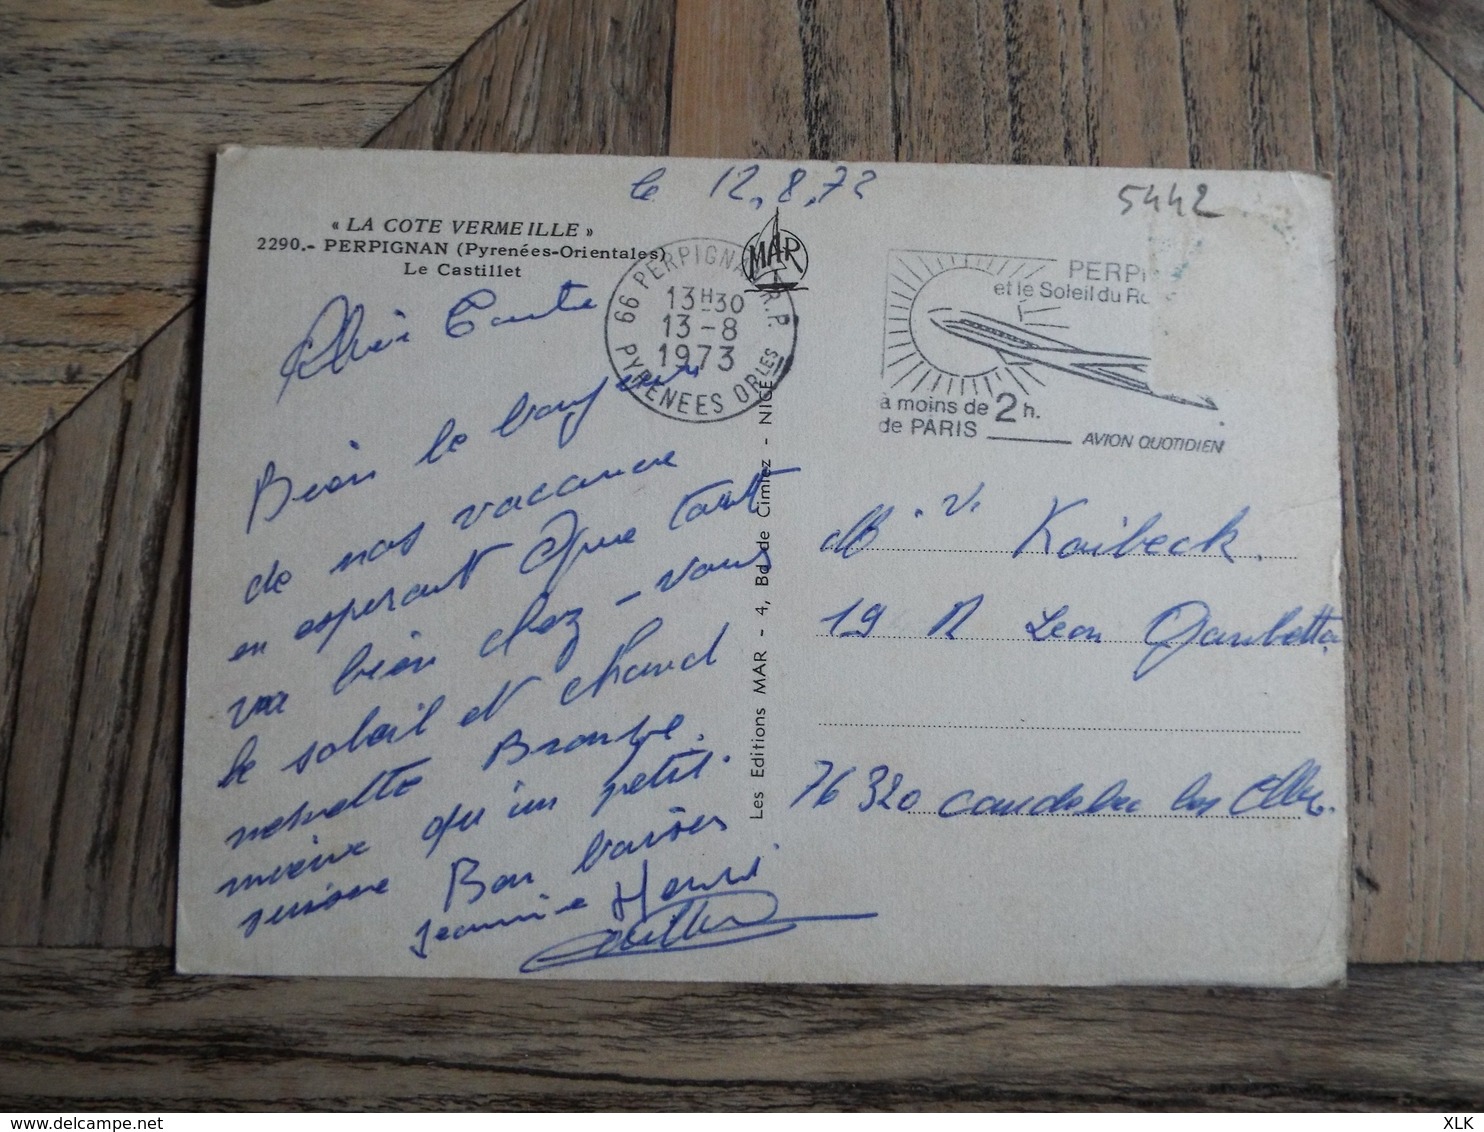 le 12.8.73
5442
« LA COTE VERMEILLE »
2290.- PERPIGNAN (Pyrénées-Orientales)
Le Castillet
MAR
66 PERPIGNAN R.P.
13H30
13-8
1973
PYRENEES ORLES
PERPI
et le Soleil du Ro
à moins de 2 h.
de PARIS
AVION QUOTIDIEN
Chère Tante
Bien le bonjour
de nos vacance
en esperant que tout
va bien chez-vous
le soleil et chaud
Bronze
mieux qu'un petit
Bon baisers
Jeannine Henri
Les Editions MAR - 4, Bd de Cimiez - NICE
M. Vr Kaibeck.
19 R Leon Gambetta
76320 Caudebec les Elbeuf.
XLK
delcampe.net